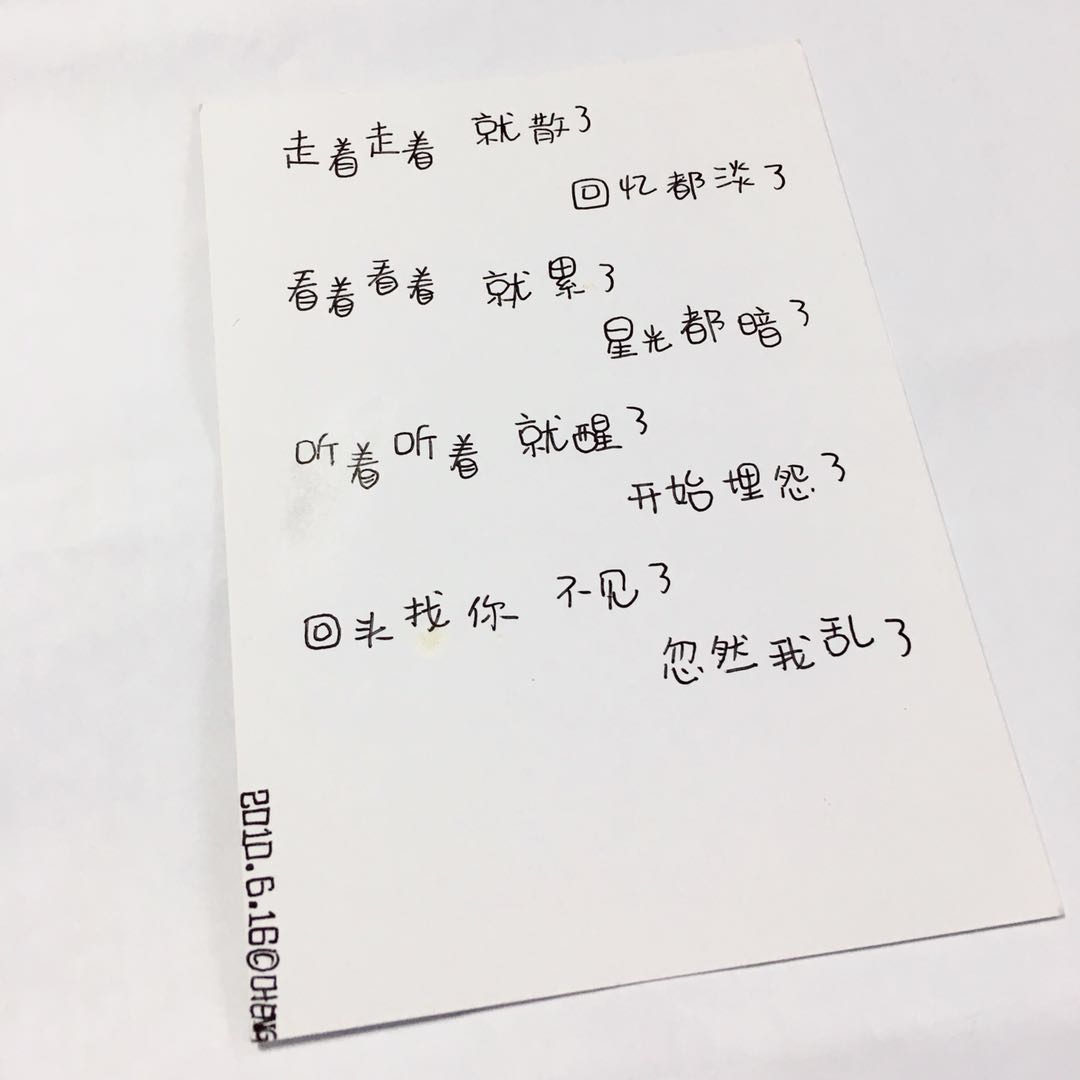 走着走着 就散了
回忆都淡了
看着看着 就累了
星光都暗了
听着听着 就醒了
开始埋怨了
回头找你 不见了
忽然我乱了
2010.6.16@CHENG